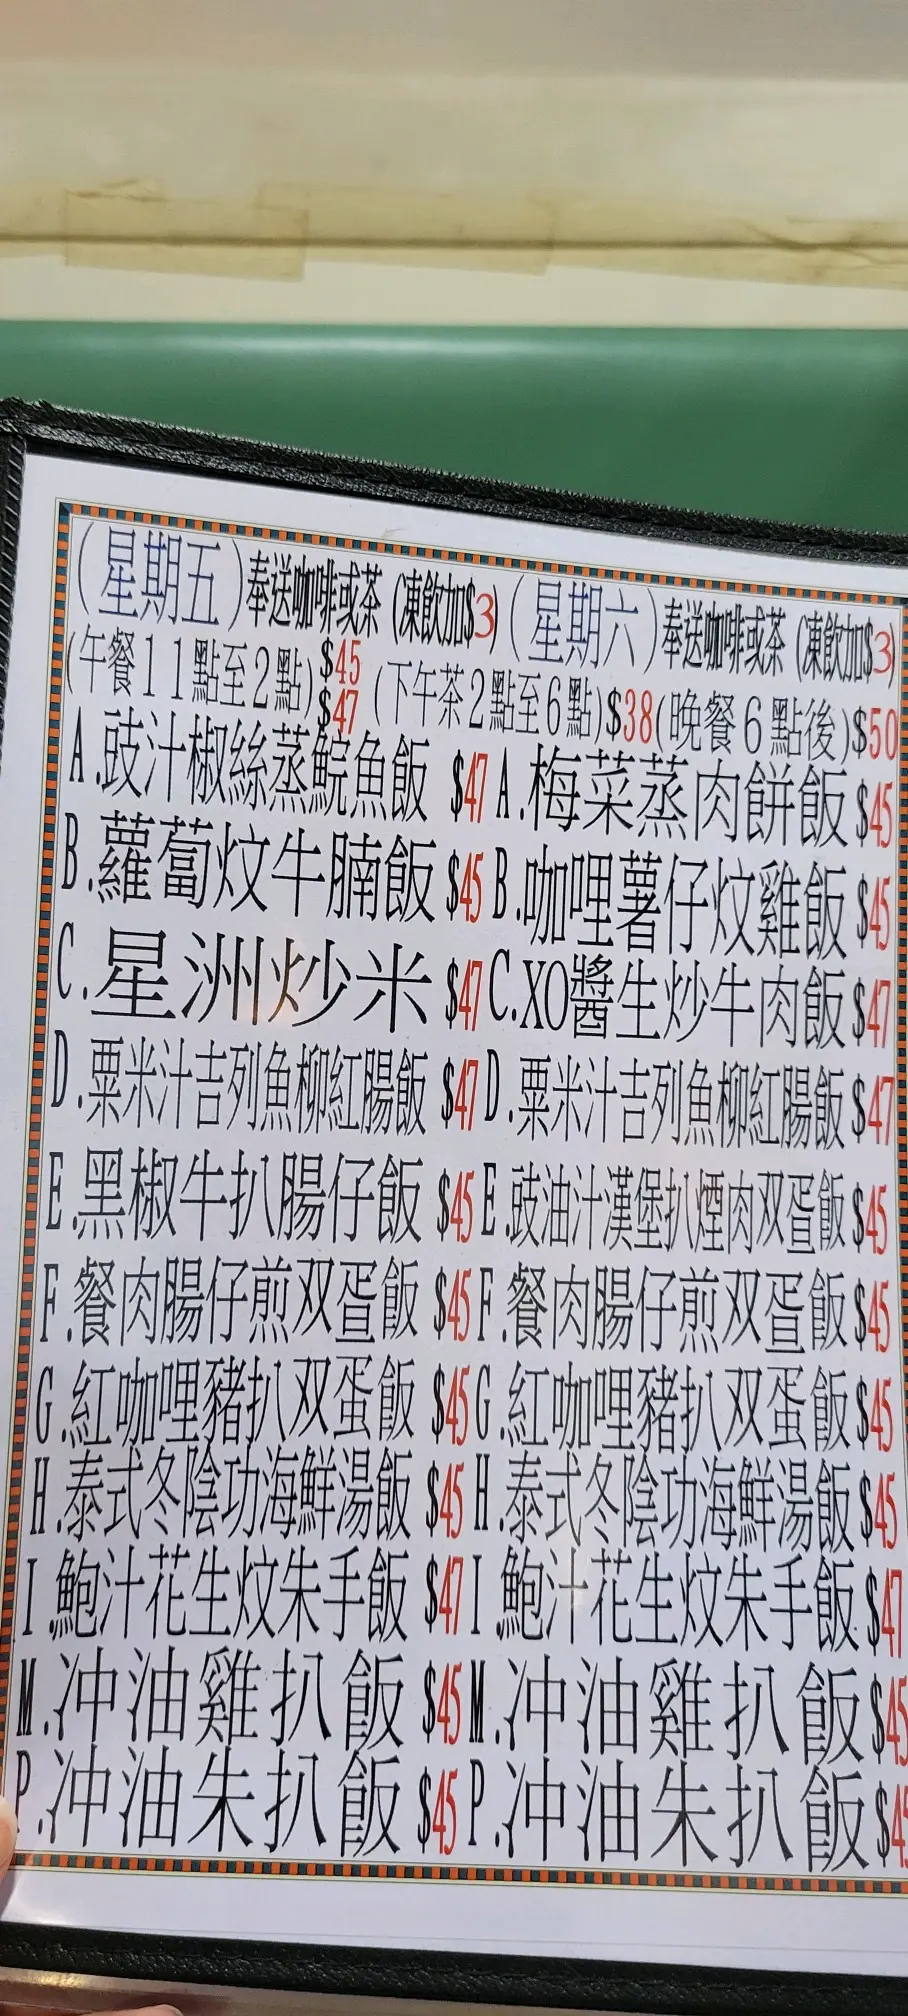 (星期五)奉送咖啡或茶 (凍飲加$3)
(午餐11點至2點)$45 $47
A.豉汁椒絲蒸鯇魚飯 $47
B.蘿蔔炆牛腩飯 $45
C.星洲炒米 $47
D.粟米汁吉列魚柳紅腸飯 $47
E.黑椒牛扒腸仔飯 $45
F.餐肉腸仔煎双疍飯 $45
G.紅咖哩豬扒双蛋飯 $45
H.泰式冬陰功海鮮湯飯 $45
I.鮑汁花生炆朱手飯 $47
M.冲油雞扒飯 $45
P.冲油朱扒飯 $45
(星期六)奉送咖啡或茶 (凍飲加$3)
(下午茶2點至6點)$38(晚餐6點後)$50
A.梅菜蒸肉餅飯 $45
B.咖哩薯仔炆雞飯 $45
C.XO醬生炒牛肉飯 $47
D.粟米汁吉列魚柳紅腸飯 $47
E.豉油汁漢堡扒煙肉双疍飯 $45
F.餐肉腸仔煎双疍飯 $45
G.紅咖哩豬扒双蛋飯 $45
H.泰式冬陰功海鮮湯飯 $45
I.鮑汁花生炆朱手飯 $47
M.冲油雞扒飯 $45
P.冲油朱扒飯 $45